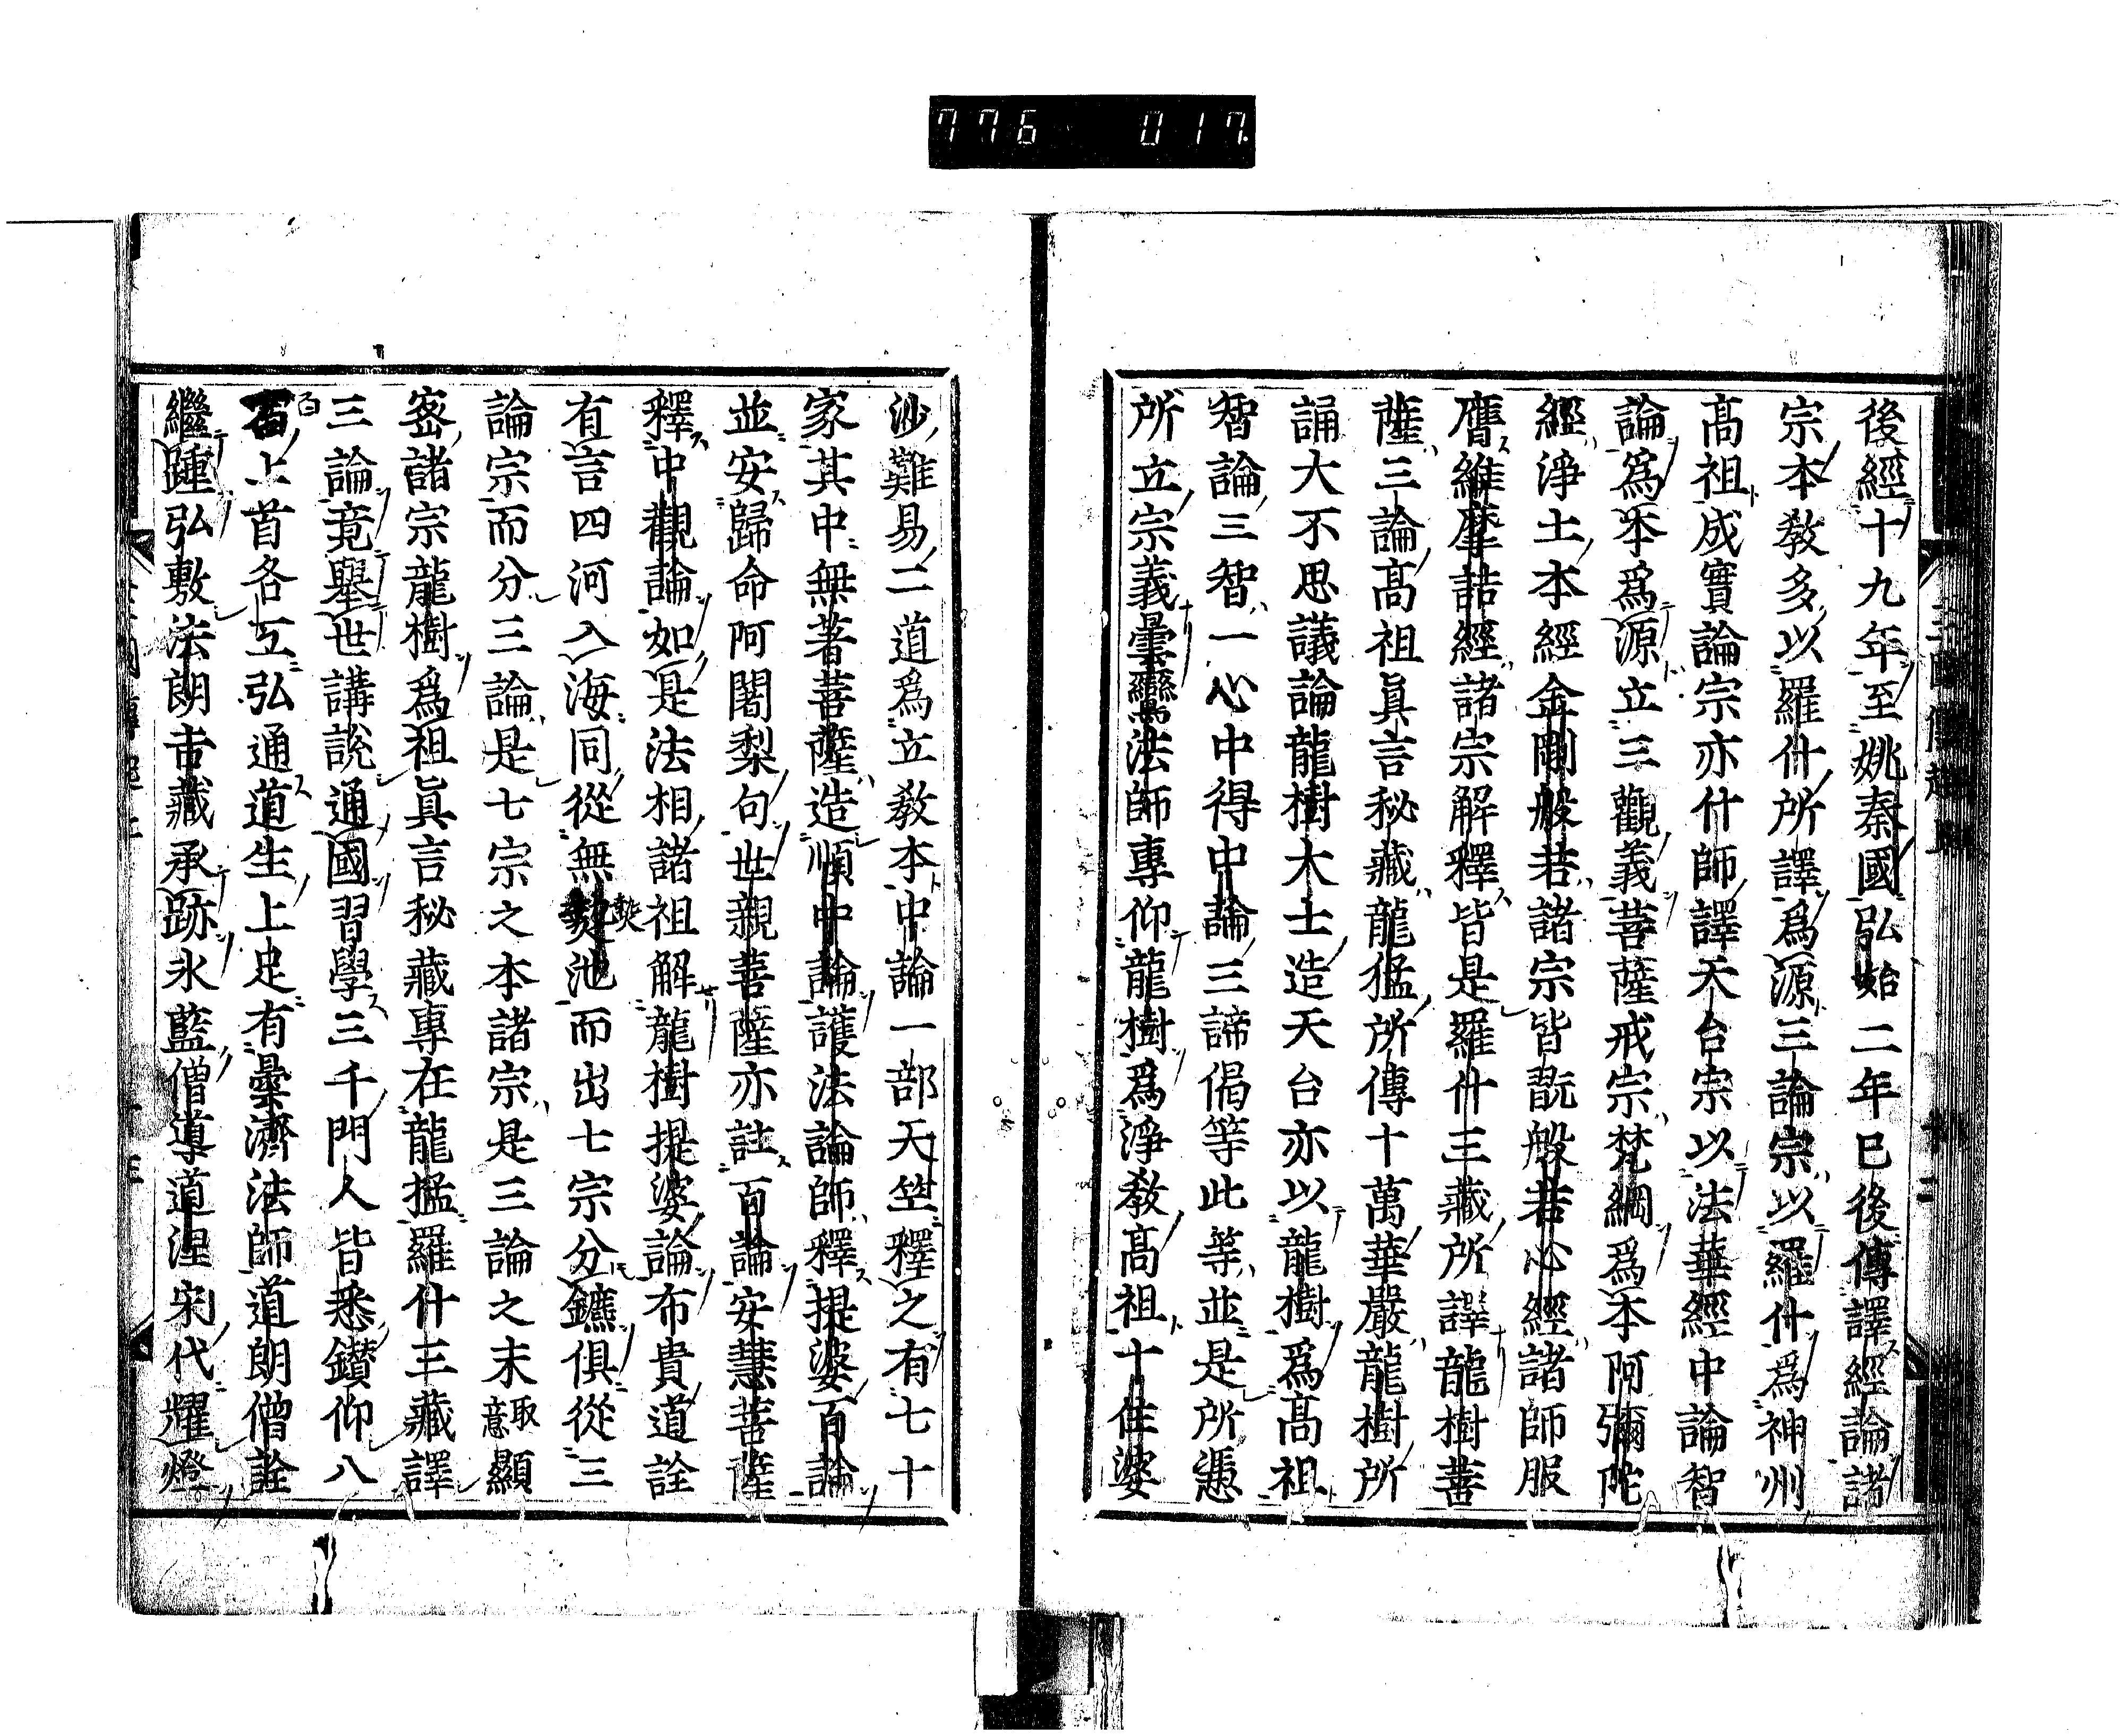 776 017
後經十九年至姚秦國弘始二年已後傳譯經論諸
宗本教多以羅什所譯為源三論宗以羅什為神州
高祖成實論宗亦什師譯天台宗以法華經中論智
論爲本爲源立三觀義菩薩戒宗梵網爲本阿彌陀
經淨土本經金剛般若諸宗皆翫般若心經諸師服
膺維摩詰經諸宗解釋皆是羅什三藏所譯龍樹菩
薩三論高祖眞言秘藏龍猛所傳十萬華嚴龍樹所
誦大不思議論龍樹大士造天台亦以龍樹爲高祖
智論三智一心中得中論三諦偈等此等並是所憑
所立宗義曇鸞法師專仰龍樹爲淨教高祖十住婆
沙難易二道爲立教本中論一部天竺釋之有七十
家其中無著菩薩造順中論護法論師釋提婆百論
並安歸命阿闍梨句世親菩薩亦註百論安慧菩薩
釋中觀論如是法相諸祖解龍樹提婆論布貴道詮
有言四河入海同從無熱池而出七宗分鑣俱從三
論宗而分三論是七宗之本諸宗是三論之末取意顯
密諸宗龍樹爲祖眞言秘藏專在龍猛羅什三藏譯
三論竟舉世講說通國習學三千門人皆悉鑽仰八
百上首各互弘通道生上足有曇濟法師道朗僧詮
繼踵弘敷法朗吉藏承跡氷藍僧導道涅宋代耀燈